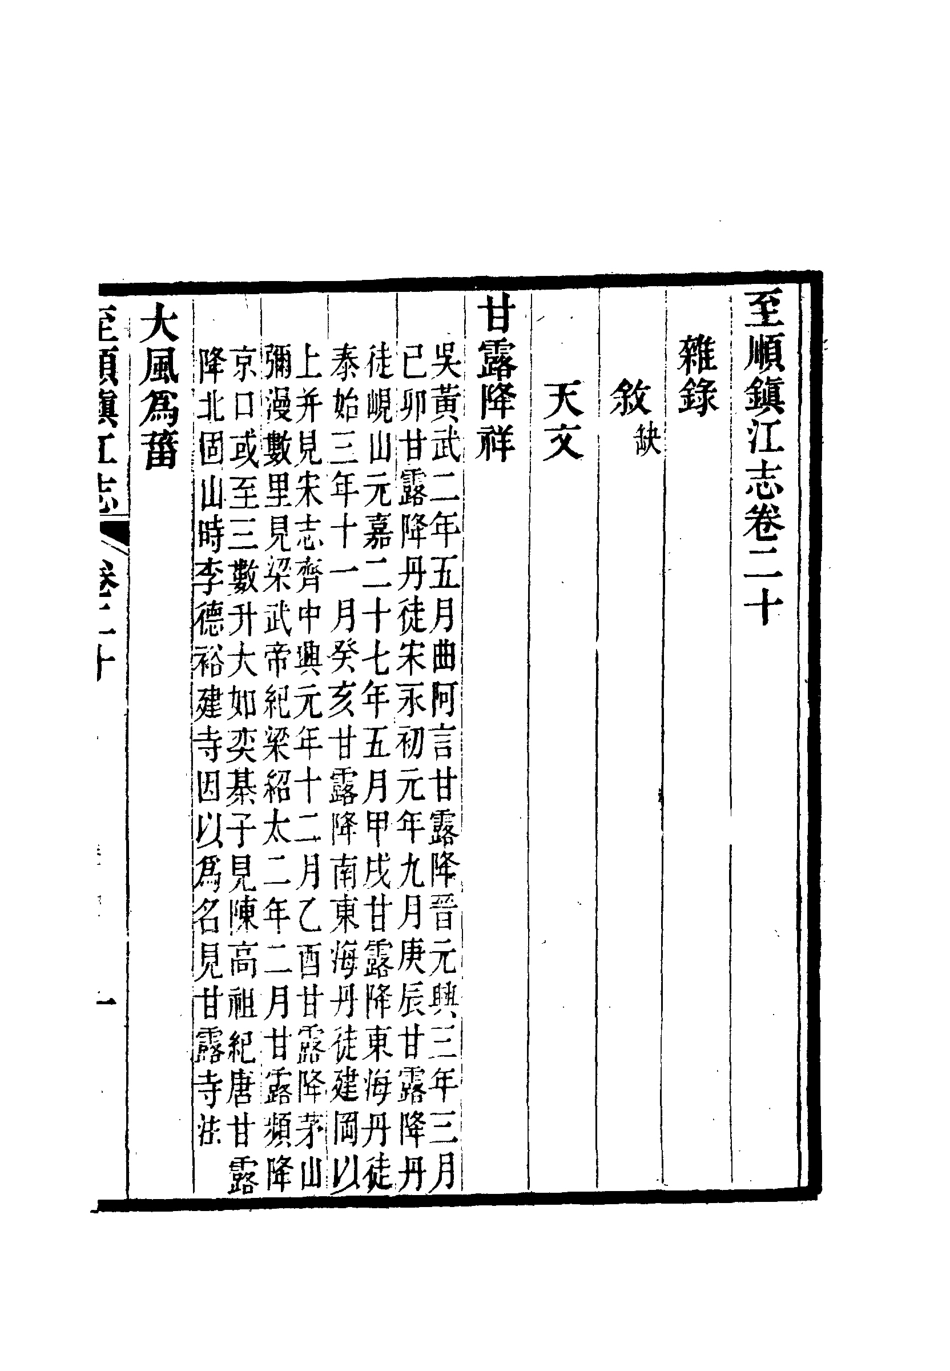 至順鎮江志卷二十
雜錄
敘缺
天文
甘露降祥
吳黃武二年五月曲阿言甘露降晉元興三年三月
己卯甘露降丹徒宋永初元年九月庚辰甘露降丹
徒峴山元嘉二十七年五月甲戌甘露降東海丹徒
泰始三年十一月癸亥甘露降南東海丹徒建岡以
上并見宋志齊中興元年十二月乙酉甘露降茅山
彌漫數里見梁武帝紀梁紹太二年二月甘露頻降
京口或至三數升大如奕棊子見陳高祖紀唐甘露
降北固山時李德裕建寺因以為名見甘露寺注
大風為菑
至順鎮江志 卷二十 一